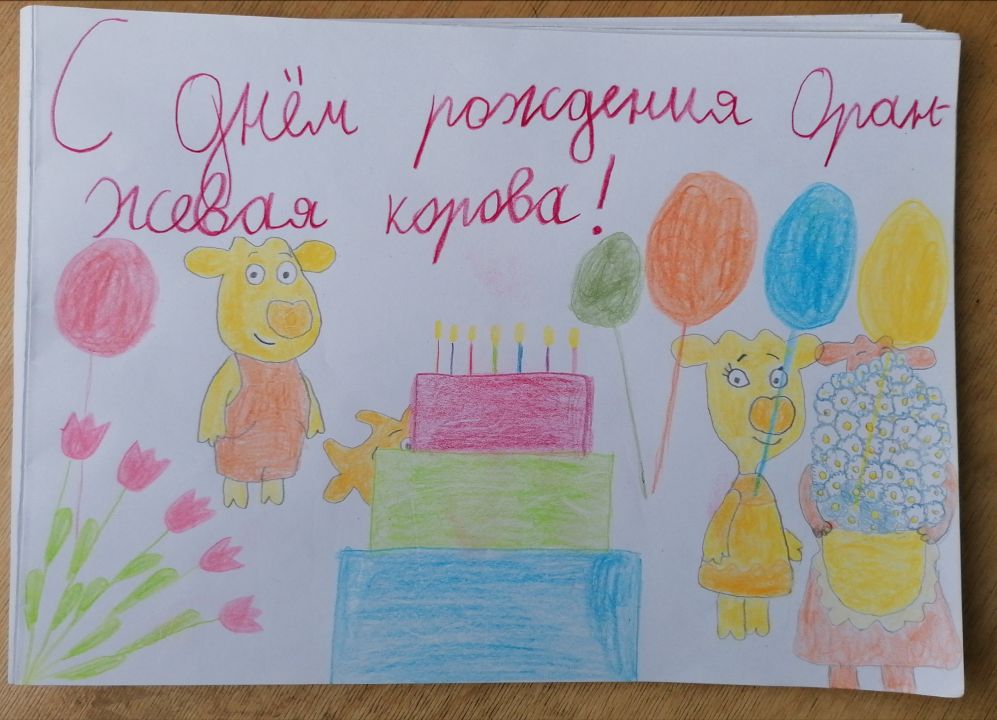 С Днём рождения Оран-
жевая корова!